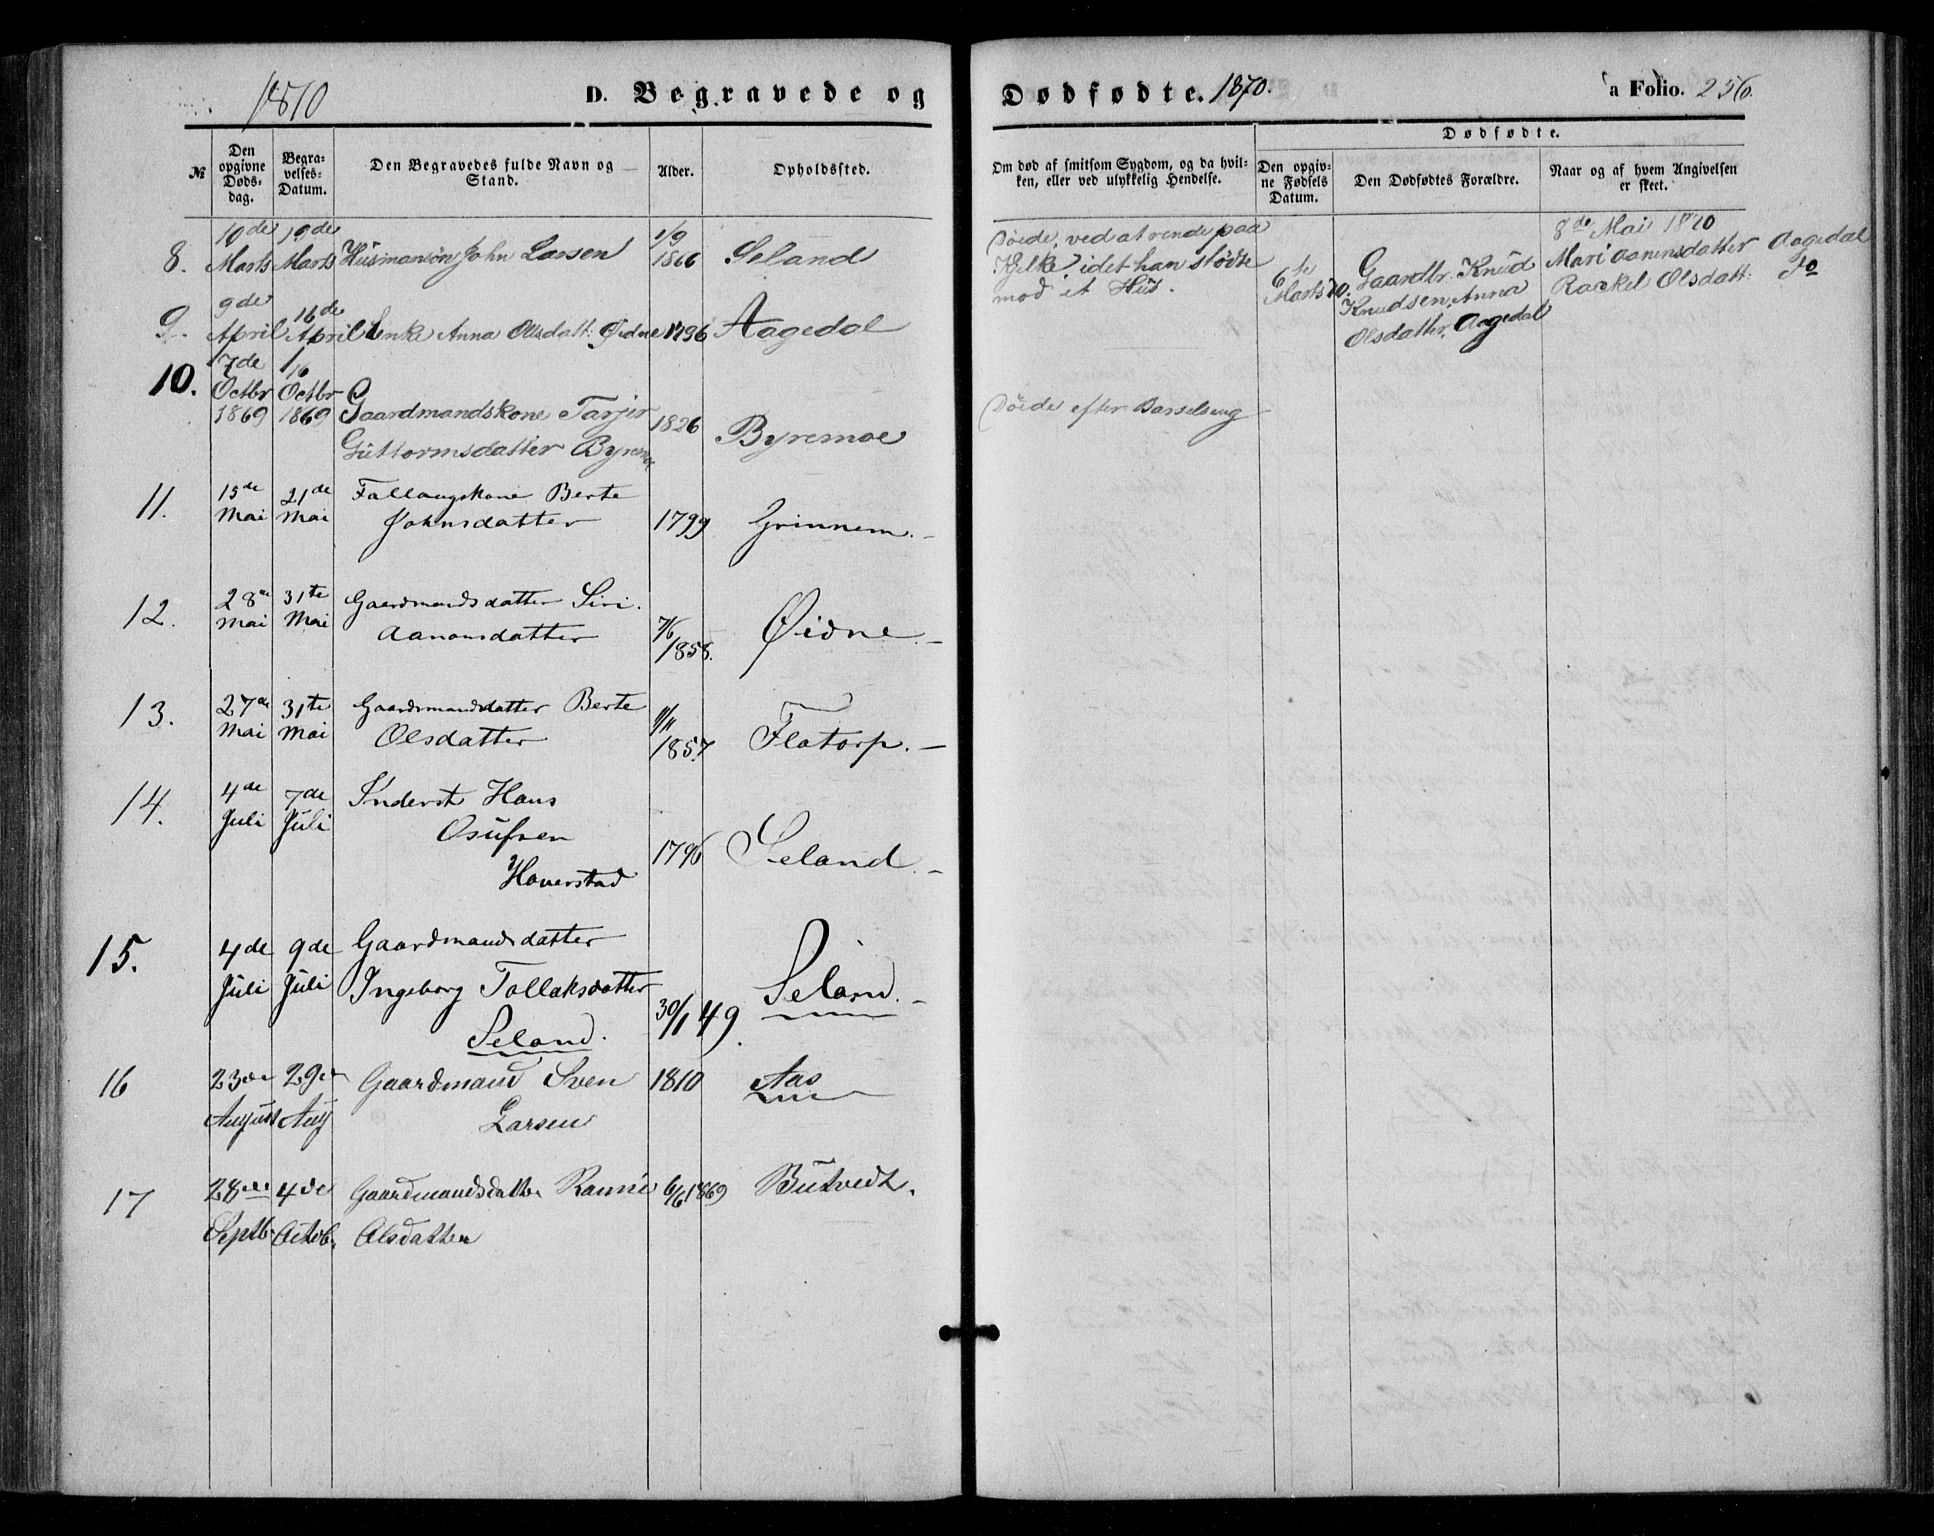 1870
D. Begravede og
Dødfødte. 1870.
a Folio. 256.
№
Den opgivne Døds-dag.
Begra-velses-Datum.
Den Begravedes fulde Navn og Stand.
Alder.
Opholdssted.
Om død af smitsom Sygdom, og da hvil-ken, eller ved ulykkelig Hendelse.
Dødfødte.
Den opgiv-ne Fødsels Datum.
Den Dødfødtes Forældre.
Naar og af hvem Angivelsen er skeet.
8.
10de Marts
19de Marts
Husmansøn John Larsen
1/9 1866
Seland
Döede, ved at rende paa
Kjelke, idet han stödte
mod et Hus.
6te Marts 70.
Gaardbr. Knud
Knudsen, Anna
Olsdatter, Aagedal
8de Mai 1870
Mari Aanensdatter Aagedal
Rackel Olsdatt. do
9.
9de April
16de April
Enke Anna Olsdatt. Øidne
1796
Aagedal
10.
7de Octbr 1869
16 Octbr 1869
Gaardmandskone Tarjer
Guttormsdatter Byremo
1826
Byremoe
Döede efter Barselseng
11.
15de Mai
21de Mai
Fattaugskone Berte
Johnsdatter
1799
Grinnem.
12.
28de Mai
31te Mai
Gaardmandsdatter Siri
Aanonsdatter
7/6 1858.
Øidne.
13.
27de Mai
31te Mai
Gaardmandsdatter Berte
Olsdatter
11/11 1857
Flatorp.
14.
4de Juli
7de Juli
Inderst Hans
Osufsen
Haverstad
1796
Seland.
15.
4de Juli
9de Juli
Gaardmandsdatter
Ingeborg Tollaksdatter
Seland.
30/1 49.
Seland.
16
23de August
29de Aug
Gaardmand Sven
Larsen
1810
Aas
17
28de Septb.
4de Octob.
Gaardmandsdatter Ramie
Olsdatter
6/6 1869
Butvedt.